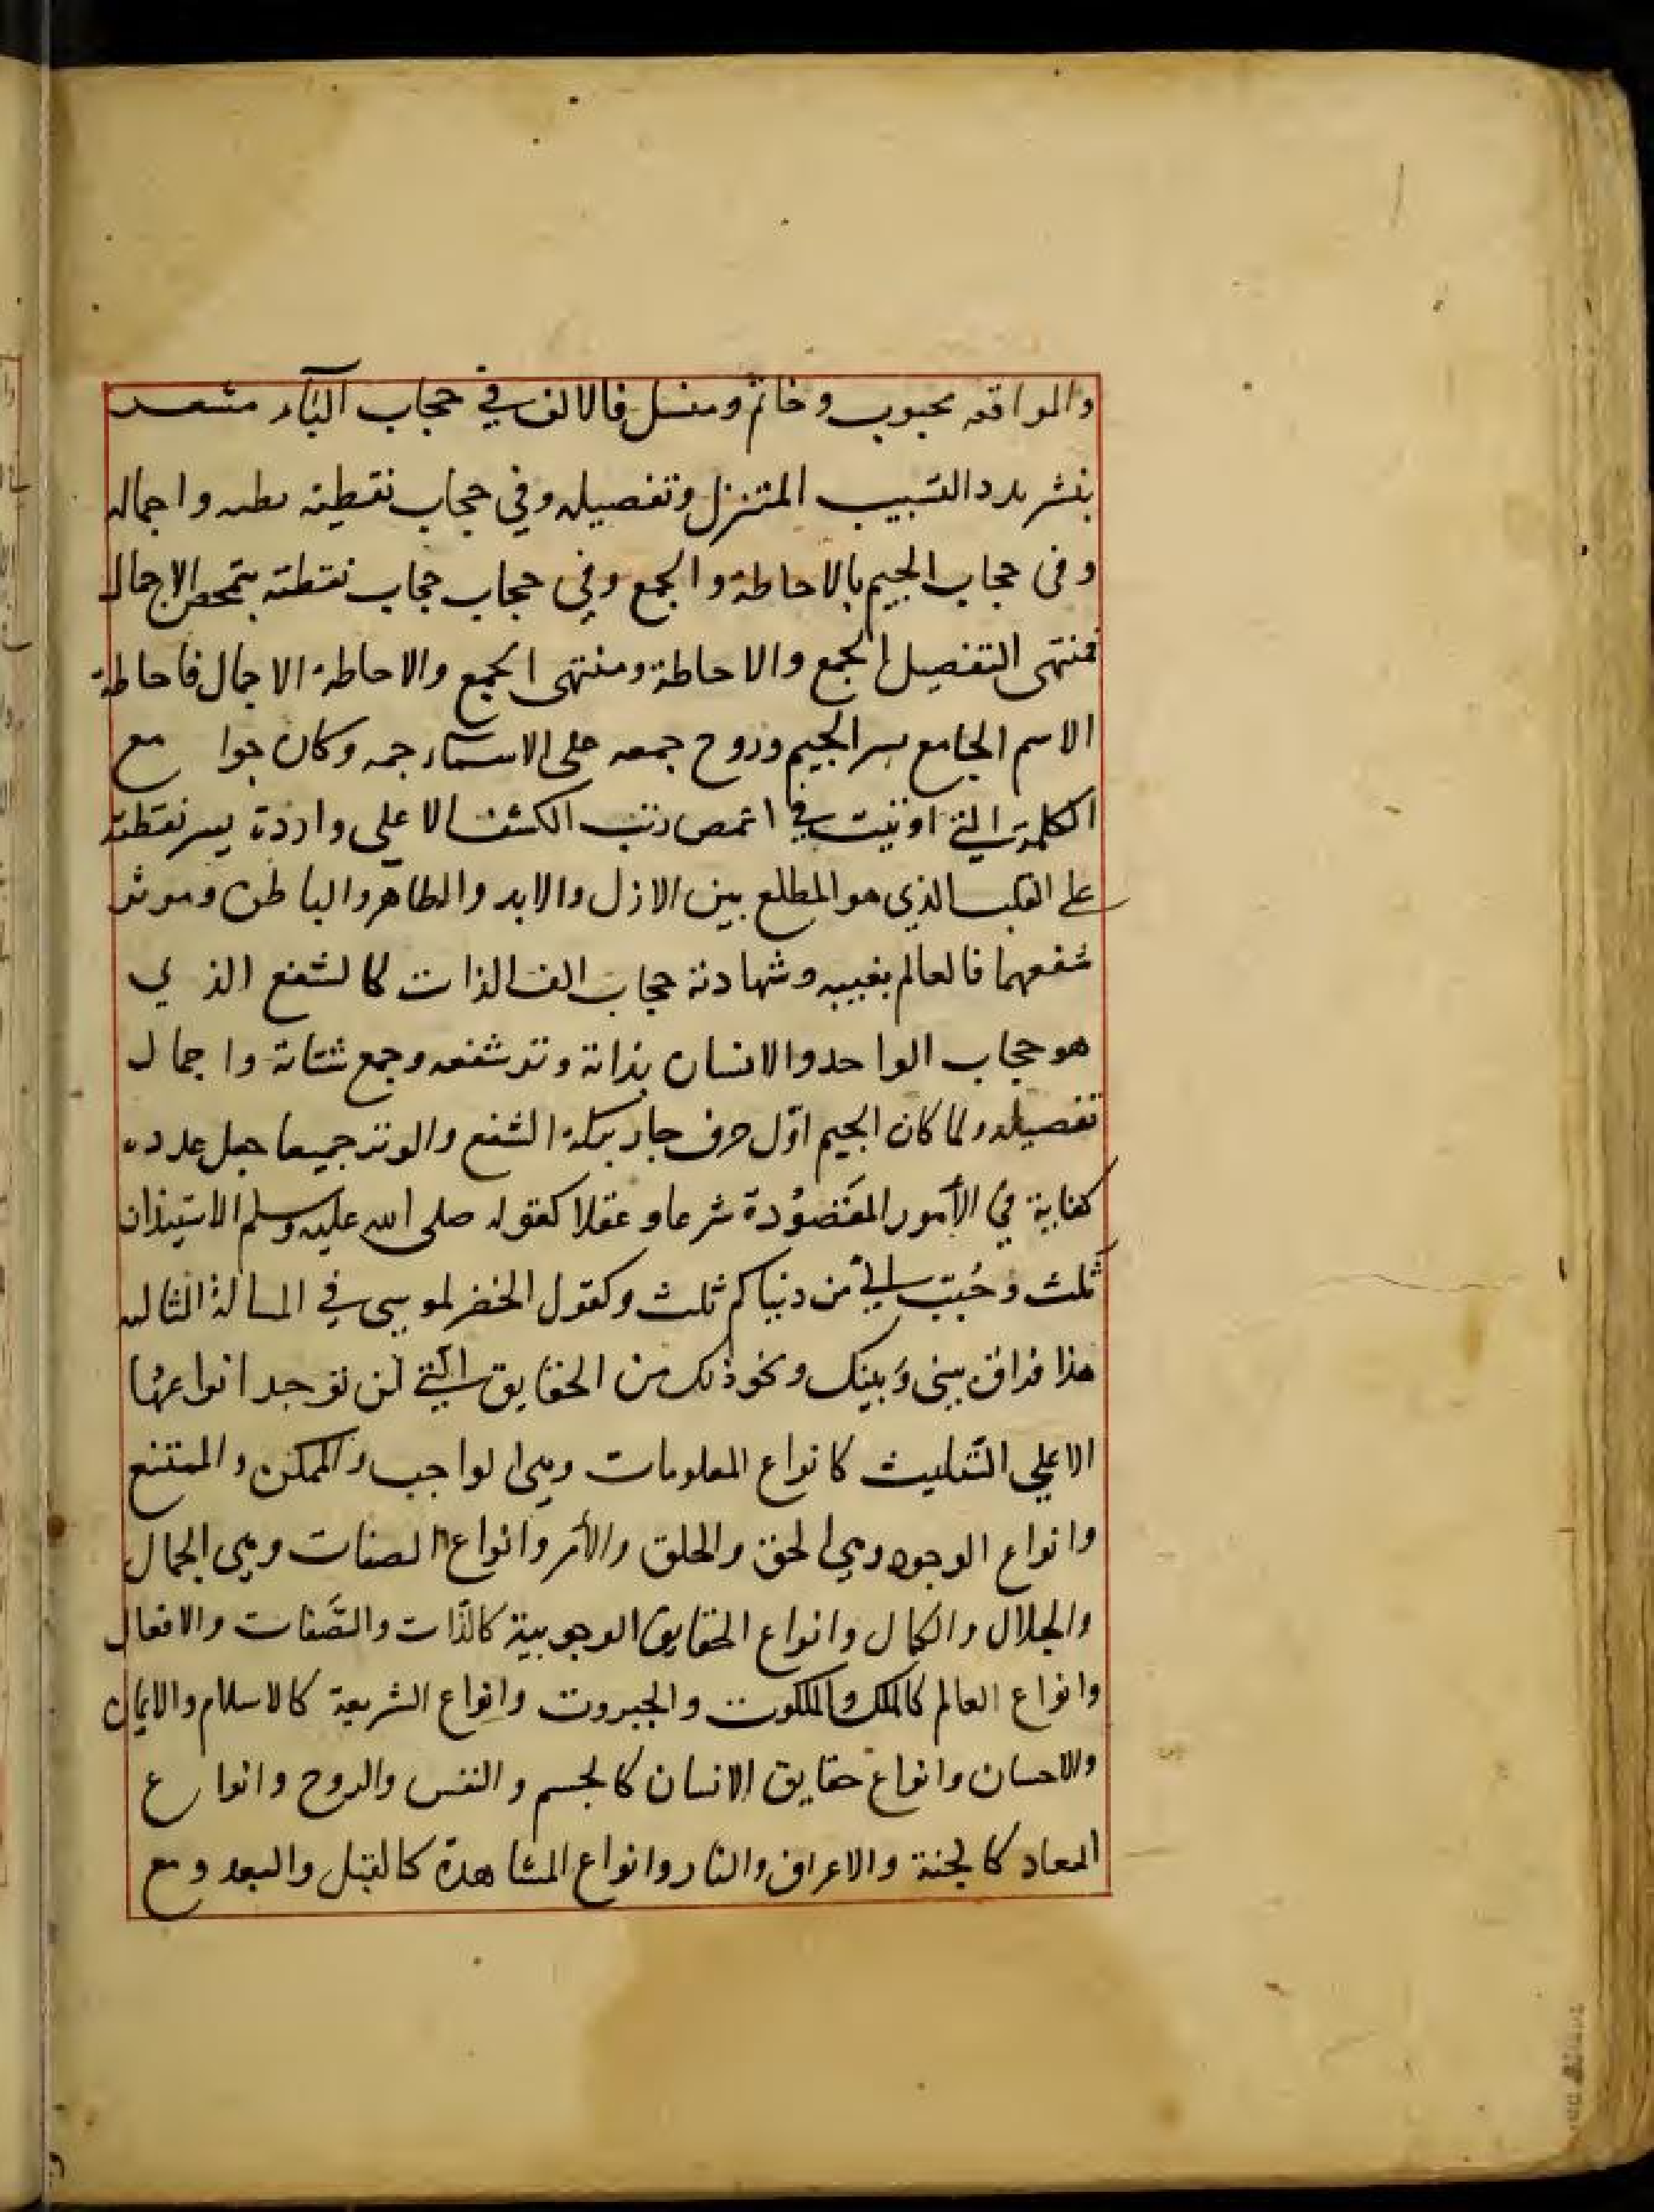 والمراقد محبوب وخاتم ومنسل فالالف في حجاب البآء مشعر
بنشر المتنزل وتفصيله وفي حجاب نقطته واجماله
وفى حجاب الجيم بالاحاطة والجمع وفي حجاب حجاب نقطته بتمحض الاجمال
فمنتهى التفصيل الجمع والاحاطة ومنتهى الجمع والاحاطة الاجمال فاحاطة
الاسم الجامع بسر الجيم وروح جمعه على الاسماء جمه وكان جوا مع
الكلمة التي اوتيت في اغمص رتب الكشف الاعلى واردة بسر نقطته
على القلب الذي هو المطلع بين الازل والابد والظاهر والباطن وهو
شفعهما فالعالم بغيبه وشهادته حجاب الف الذات كالشفع الذ ي
هو حجاب الواحد والانسان بذاته وتر شفعه وجمع شتاته واجمال
تفصيله ولما كان الجيم اوّل حرف جاد ببركة الشفع والوتر جميعا جعل عدده
كفاية في الأمور المقصُودة شرعا وعقلا كقوله صلى الله عليه وسلم الاستيذان
ثلث وحُبّب اليّ من دنياكم ثلث وكقول الخضر لموسى في المسالة الثالثه
هذا فراق بينى وَبينك ونحو ذلك من الحقايق التي لن توجد انواعها
الاعلي التّثليث كانواع المعلومات وهى الواجب والممكن والممتنع
وانواع الوجود وهي الحق والخلق والأمر وانواع الصفات وهى الجمال
والجلال والكمال وانواع الحقايق الوجوبية كالذّات والصّفات والافعال
وانواع العالم كالملك والملكوت والجبروت وانواع الشريعة كالاسلام والايمان
والاحسان وانواع حقايق الانسان كالجسم والنفس والروح وانوا ع
المعاد كالجنة والاعراف والنار وانواع المشاهدة كالقبل والبعد ومع